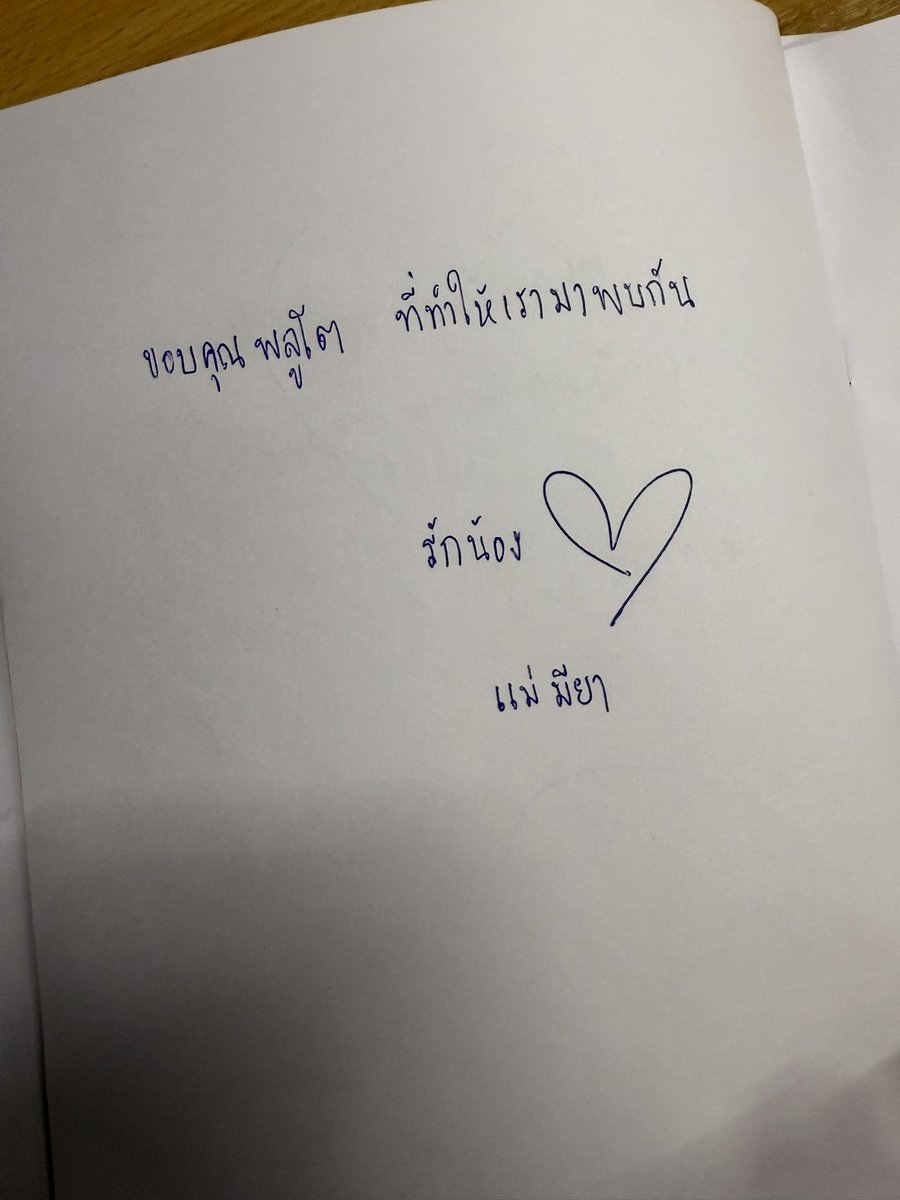 ขอบคุณ พลูโต ที่ทำให้เรามาพบกัน
รักน้อง
แม่ มียา